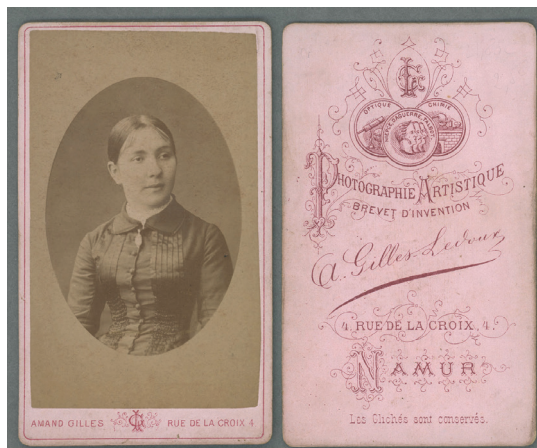 AMAND GILLES RUE DE LA CROIX 4
OPTIQUE
CHIMIE
PHOTOGRAPHIE ARTISTIQUE
BREVET D'INVENTION
A. Gilles-Ledoux
4, RUE DE LA CROIX, 4.
NAMUR
Les Clichés sont conservés.